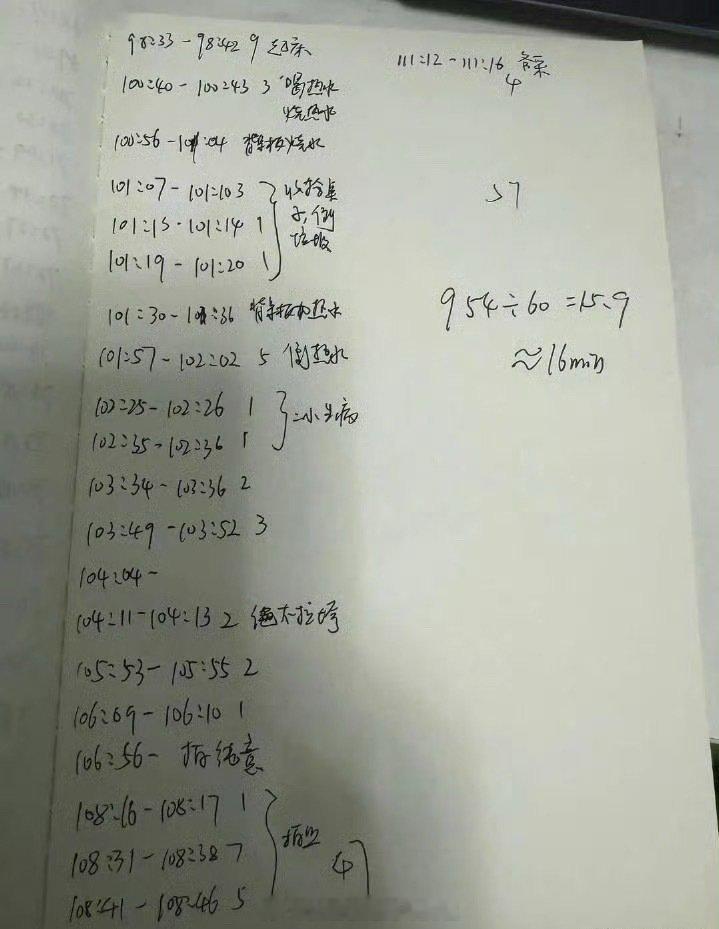 98:33 - 98:42 9 起床
100:40 - 100:43 3 喝热水
烧热水
100:56 - 101:04 背景板烧水
101:07 - 101:103 收拾桌
101:13 - 101:14 1 子,倒
垃圾
101:19 - 101:20 1
101:30 - 101:36 背景板的热水
101:57 - 102:02 5 倒热水
102:25 - 102:26 1
102:35 - 102:36 1
103:34 - 103:36 2
103:49 - 103:52 3
104:04 -
104:11 - 104:13 2
105:53 - 105:55 2
106:09 - 106:10 1
106:56 -
108:16 - 108:17 1
108:31 - 108:38 7
108:41 - 108:46 5
47
111:12 - 111:16 备菜
4
57
954÷60=15.9
≈16min